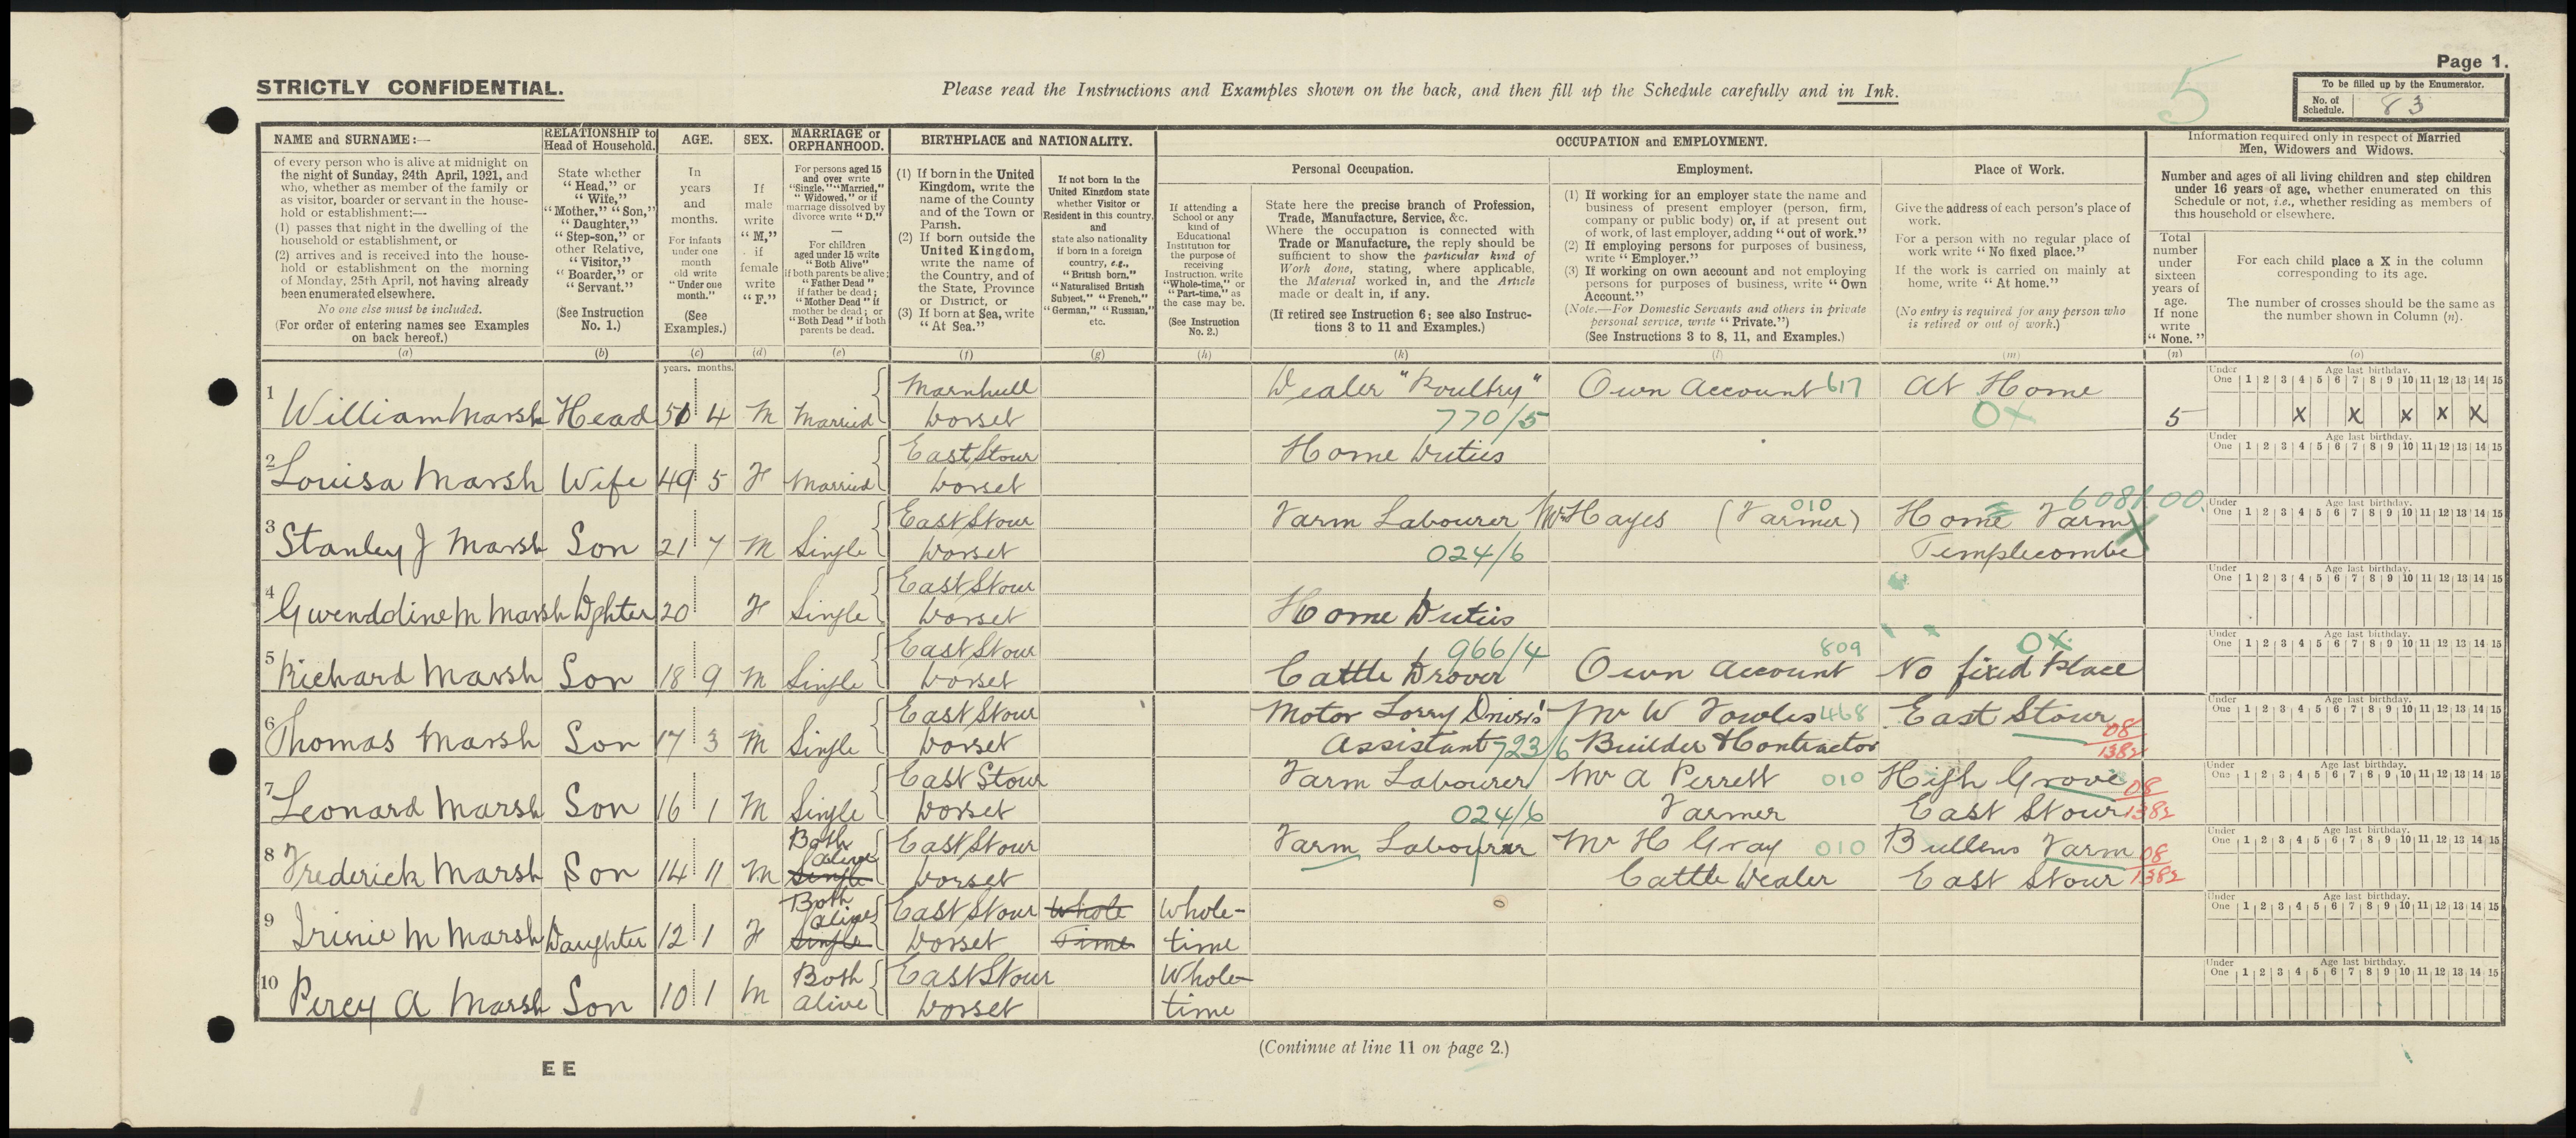 Page 1.
STRICTLY CONFIDENTIAL.
Please read the Instructions and Examples shown on the back, and then fill up the Schedule carefully and in Ink.
5
To be filled up by the Enumerator.
No. of Schedule. 83
NAME and SURNAME:—
of every person who is alive at midnight on
the night of Sunday, 24th April, 1921, and
who, whether as member of the family or
as visitor, boarder or servant in the house-
hold or establishment:—
(1) passes that night in the dwelling of the
household or establishment, or
(2) arrives and is received into the house-
hold or establishment on the morning
of Monday, 25th April, not having already
been enumerated elsewhere.
No one else must be included.
(For order of entering names see Examples
on back hereof.)
(a)
RELATIONSHIP to
Head of Household.
State whether
"Head," or
"Wife,"
"Mother," "Son,"
"Daughter,"
"Step-son," or
other Relative,
"Visitor,"
"Boarder," or
"Servant."
(See Instruction
No. 1.)
(b)
AGE.
In
years
and
months.
For infants
under one
month
old write
"Under one
month."
(See
Examples.)
(c)
SEX.
If
male
write
"M,"
if
female
write
"F."
(d)
MARRIAGE or
ORPHANHOOD.
For persons aged 15
and over write
"Single," "Married,"
"Widowed," or if
marriage dissolved by
divorce write "D."
—
For children
aged under 15 write
"Both Alive"
if both parents be alive;
"Father Dead"
if father be dead;
"Mother Dead" if
mother be dead; or
"Both Dead" if both
parents be dead.
(e)
BIRTHPLACE and NATIONALITY.
(1) If born in the United
Kingdom, write the
name of the County
and of the Town or
Parish.
(2) If born outside the
United Kingdom,
write the name of
the Country, and of
the State, Province
or District, or
(3) If born at Sea, write
"At Sea."
(f)
If not born in the
United Kingdom state
whether Visitor or
Resident in this country,
and
state also nationality
if born in a foreign
country, e.g.,
"British born,"
"Naturalised British
Subject," "French,"
"German," "Russian,"
etc.
(g)
OCCUPATION and EMPLOYMENT.
If attending a
School or any
kind of
Educational
Institution for
the purpose of
receiving
Instruction, write
"Whole-time," or
"Part-time," as
the case may be.
(See Instruction
No. 2.)
(h)
Personal Occupation.
State here the precise branch of Profession,
Trade, Manufacture, Service, &c.
Where the occupation is connected with
Trade or Manufacture, the reply should be
sufficient to show the particular kind of
Work done, stating, where applicable,
the Material worked in, and the Article
made or dealt in, if any.
(If retired see Instruction 6; see also Instruc-
tions 3 to 11 and Examples.)
(k)
Employment.
(1) If working for an employer state the name and
business of present employer (person, firm,
company or public body) or, if at present out
of work, of last employer, adding "out of work."
(2) If employing persons for purposes of business,
write "Employer."
(3) If working on own account and not employing
persons for purposes of business, write "Own
Account."
(Note.—For Domestic Servants and others in private
personal service, write "Private.")
(See Instructions 3 to 8, 11, and Examples.)
(l)
Place of Work.
Give the address of each person's place of
work.
For a person with no regular place of
work write "No fixed place."
If the work is carried on mainly at
home, write "At home."
(No entry is required for any person who
is retired or out of work.)
(m)
Information required only in respect of Married
Men, Widowers and Widows.
Number and ages of all living children and step children
under 16 years of age, whether enumerated on this
Schedule or not, i.e., whether residing as members of
this household or elsewhere.
Total
number
under
sixteen
years of
age.
If none
write
"None."
(n)
For each child place a X in the column
corresponding to its age.
The number of crosses should be the same as
the number shown in Column (n).
(o)
years. months.
Under One Age last birthday. 1 2 3 4 5 6 7 8 9 10 11 12 13 14 15
1 William Marsh Head 50 4 M Married Marnhull Dorset Dealer "Poultry" 770/5 Own Account 617 At Home OX 5 X X X X X
Under One Age last birthday. 1 2 3 4 5 6 7 8 9 10 11 12 13 14 15
2 Louisa Marsh Wife 49 5 F Married East Stour Dorset Home Duties
Under One Age last birthday. 1 2 3 4 5 6 7 8 9 10 11 12 13 14 15
3 Stanley J Marsh Son 21 7 M Single East Stour Dorset Farm Labourer 024/6 Mr Hayes (Farmer) 010 Home Farm Templecombe
Under One Age last birthday. 1 2 3 4 5 6 7 8 9 10 11 12 13 14 15
4 Gwendoline M Marsh Dghter 20 F Single East Stour Dorset Home Duties
Under One Age last birthday. 1 2 3 4 5 6 7 8 9 10 11 12 13 14 15
5 Richard Marsh Son 18 9 M Single East Stour Dorset 966/4 Cattle Drover Own Account 809 No fixed Place OX
Under One Age last birthday. 1 2 3 4 5 6 7 8 9 10 11 12 13 14 15
6 Thomas Marsh Son 17 3 M Single East Stour Dorset Motor Lorry Driver's Assistant 723/6 Mr W Fowles 468 Builder & Contractor East Stour 08 1382
Under One Age last birthday. 1 2 3 4 5 6 7 8 9 10 11 12 13 14 15
7 Leonard Marsh Son 16 1 M Single East Stour Dorset Farm Labourer 024/6 Mr A Perrett 010 Farmer High Grove East Stour 08 1382
Under One Age last birthday. 1 2 3 4 5 6 7 8 9 10 11 12 13 14 15
8 Frederick Marsh Son 14 11 M Both alive Single East Stour Dorset Farm Labourer Mr H Gray 010 Cattle Dealer Bullens Farm East Stour 08 1382
Under One Age last birthday. 1 2 3 4 5 6 7 8 9 10 11 12 13 14 15
9 Irinie M Marsh Daughter 12 1 F Both alive Single East Stour Dorset Whole Time Whole-time
Under One Age last birthday. 1 2 3 4 5 6 7 8 9 10 11 12 13 14 15
10 Percy A Marsh Son 10 1 M Both alive East Stour Dorset Whole-time
(Continue at line 11 on page 2.)
E E